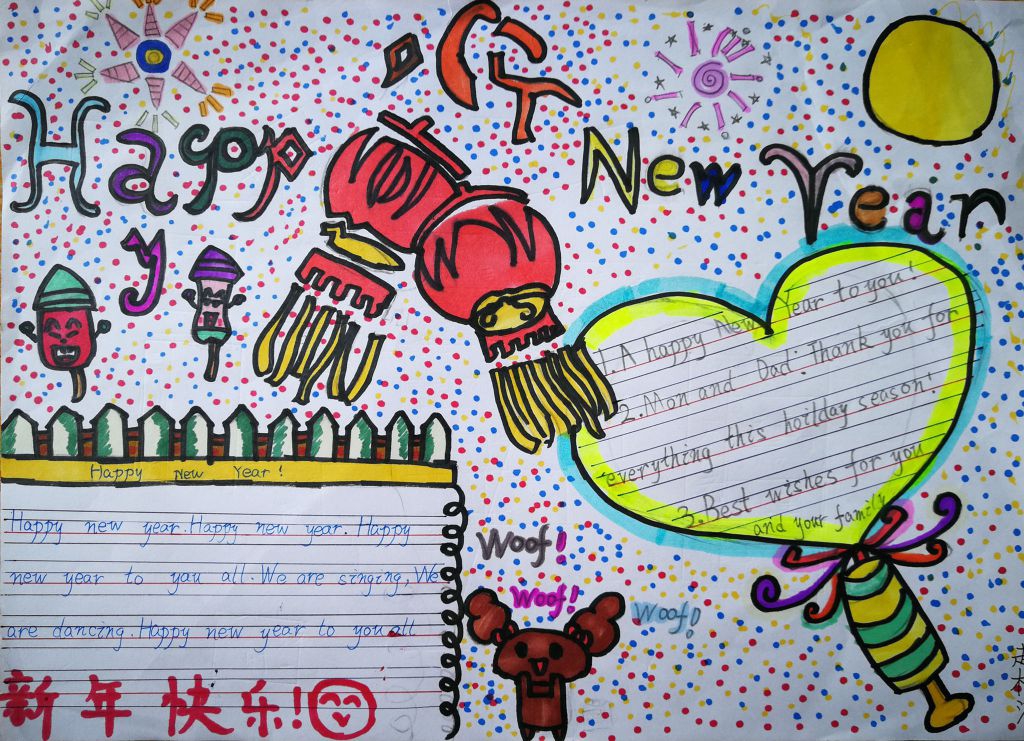 Happy
New Year
1. A happy New Year to you!
2. Mon and Dad: Thank you for
everything this hoilday season!
3. Best wishes for you
and your family
Happy New Year!
Happy new year. Happy new year. Happy
new year to you all. We are singing, We
are dancing. Happy new year to you all
新年快乐!
Woof!
Woof!
Woof!